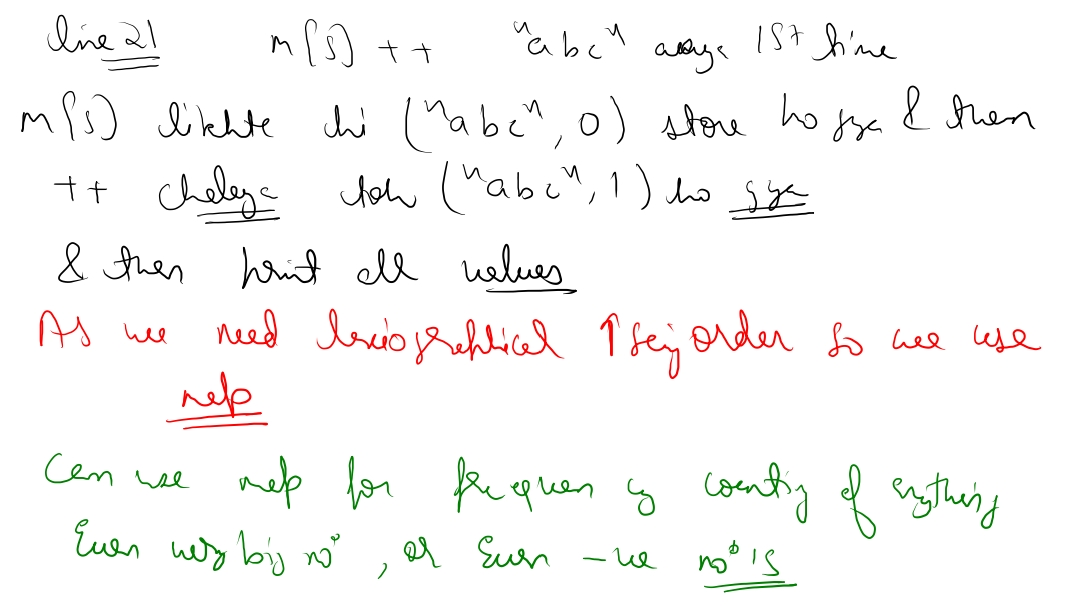 line 21 m[s] ++ "abc" aayga 1st time
m[s] likhte hi ("abc", 0) store ho gya & then
++ chalega toh ("abc", 1) ho gya
& then print all values
As we need lexiographical ↑seing order so we use
map
Can use map for frequency counting of anything
Even very big no°, or even -ve no°'s